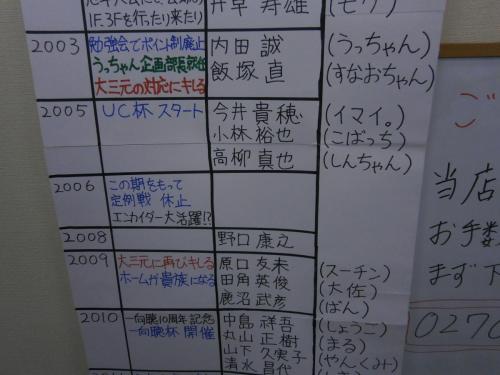 1F.3Fを行ったり来たり
井草 寿雄
2003
勉強会でポイント制廃止
うっちゃん企画部長就任
大三元の対応にキレる
内田 誠
飯塚 直
(うっちゃん)
(すなおちゃん)
2005
UC杯 スタート
今井 貴穂
小林 裕也
高柳 真也
(イマイ。)
(こばっち)
(しんちゃん)
2006
この期をもって
定例戦 休止
エンカイダー大活躍!?
2008
野口 康之
2009
大三元に再びキレる
ホームが貴族になる
原口 友未
田角 英俊
鹿沼 武彦
(スーチン)
(大佐)
(ばん)
2010
一向聴10周年記念
一向聴杯 開催
中島 祥吾
丸山 正樹
山下 久実子
清水 昌代
(しょうご)
(まる)
(やんくみ)
ご
当店
お手数
まず下
0270